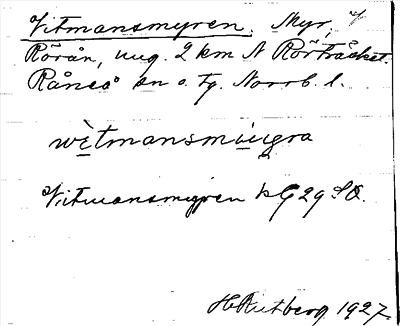 Vitmansmyren. Myr, V
Rörån, ung. 2 km N Rörträsket.
Råneå sn o. tg. Norrb. l.
wìtmansmùigra
Vitmansmyren kG 29 SO.
H Rutberg 1927.